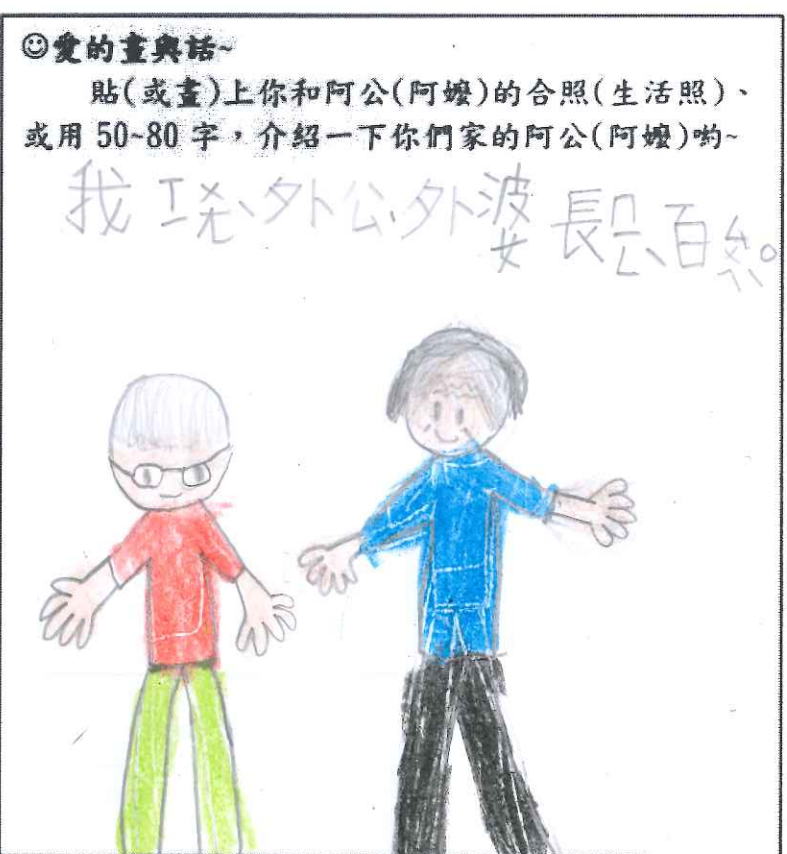 ☺愛的畫與話~
貼(或畫)上你和阿公(阿嬤)的合照(生活照)、
或用 50~80 字，介紹一下你們家的阿公(阿嬤)喲~
我 外公、外婆 長 百